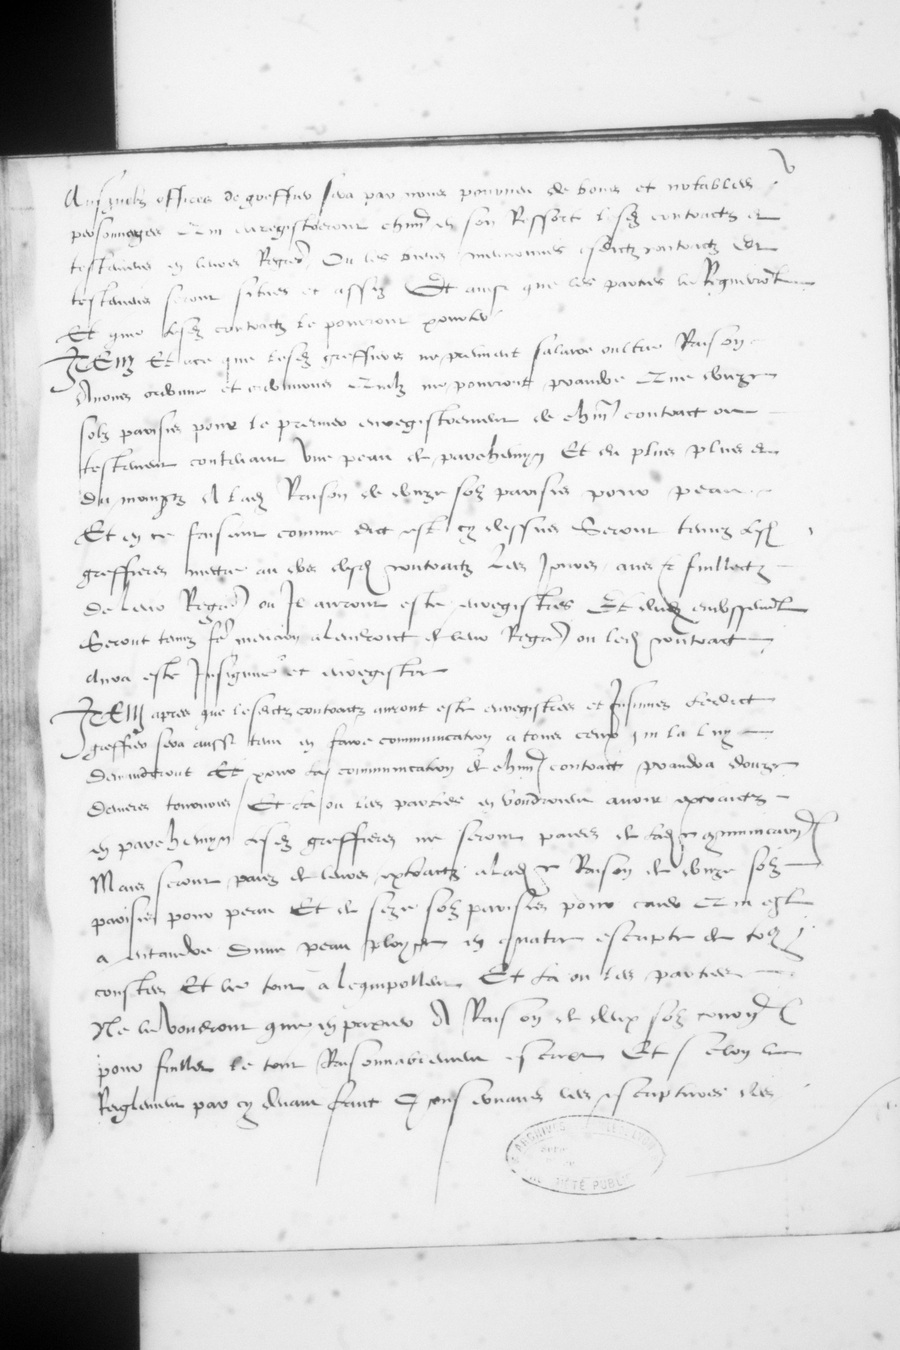 v
Ausquelz offices de greffier sera par nous pourveu de bons et notables
personnages qui enregistreront chūn en son Ressort lesdz contractz et
testamens en leurs Regrēs Ou les biens mentionnes esdictz contractz et
testamens seront situes et assiz Et ainsi que les parties le Requerront
Et que lesdz contractz le pourront porter
ITEM Et a ce que lesdz greffiers ne preignent salaire oultre Raison
Avons ordonne et ordonnons quilz ne pourront prandre que unze
solz parisis pour le premier enregistrement de chūn contract ou
testament contenant une peau de parchemyn Et du plus plus et
du moingtz A lad Raison de unze solz parisis pour peau
Et en ce faisant comme dict est cy dessus Seront tenuz lesd
greffiers mettre au dos desd contractz les Jours aus et fuilletz
de leur Regrē ou Jlz auront este enregistres Et
Seront tenuz fē mention a lendroict de leur Regrē ou led contract
aura este Insignue et enregistre
ITEM apres que lesdictz contractz auront este enregistres et Insinues ledict
greffier sera aussi tenu en faire communication a tous ceulx qui la luy
demanderont Et pour lad communication de chūn contract prandra douze
deniers tournois Et la ou les parties en vouldroient avoir extraictz
en parchemyn lesdz greffiers ne seront paies de lad communicaōn
Mais seront paiez de leurs extraictz a lad Raison de unze solz
parisis pour peau Et de seze solz parisis pour card qui est
a entendre dune peau ployee en quatre escripte de tous
coustes Et le tout a lequipollent Et la ou les parties
Ne le vouldront que en papier A Raison de deux solz tournois
pour fuillet le tout Raisonnablement escript Et selon le
Reglement par cy devant faict
ARCHIVES
PUBL